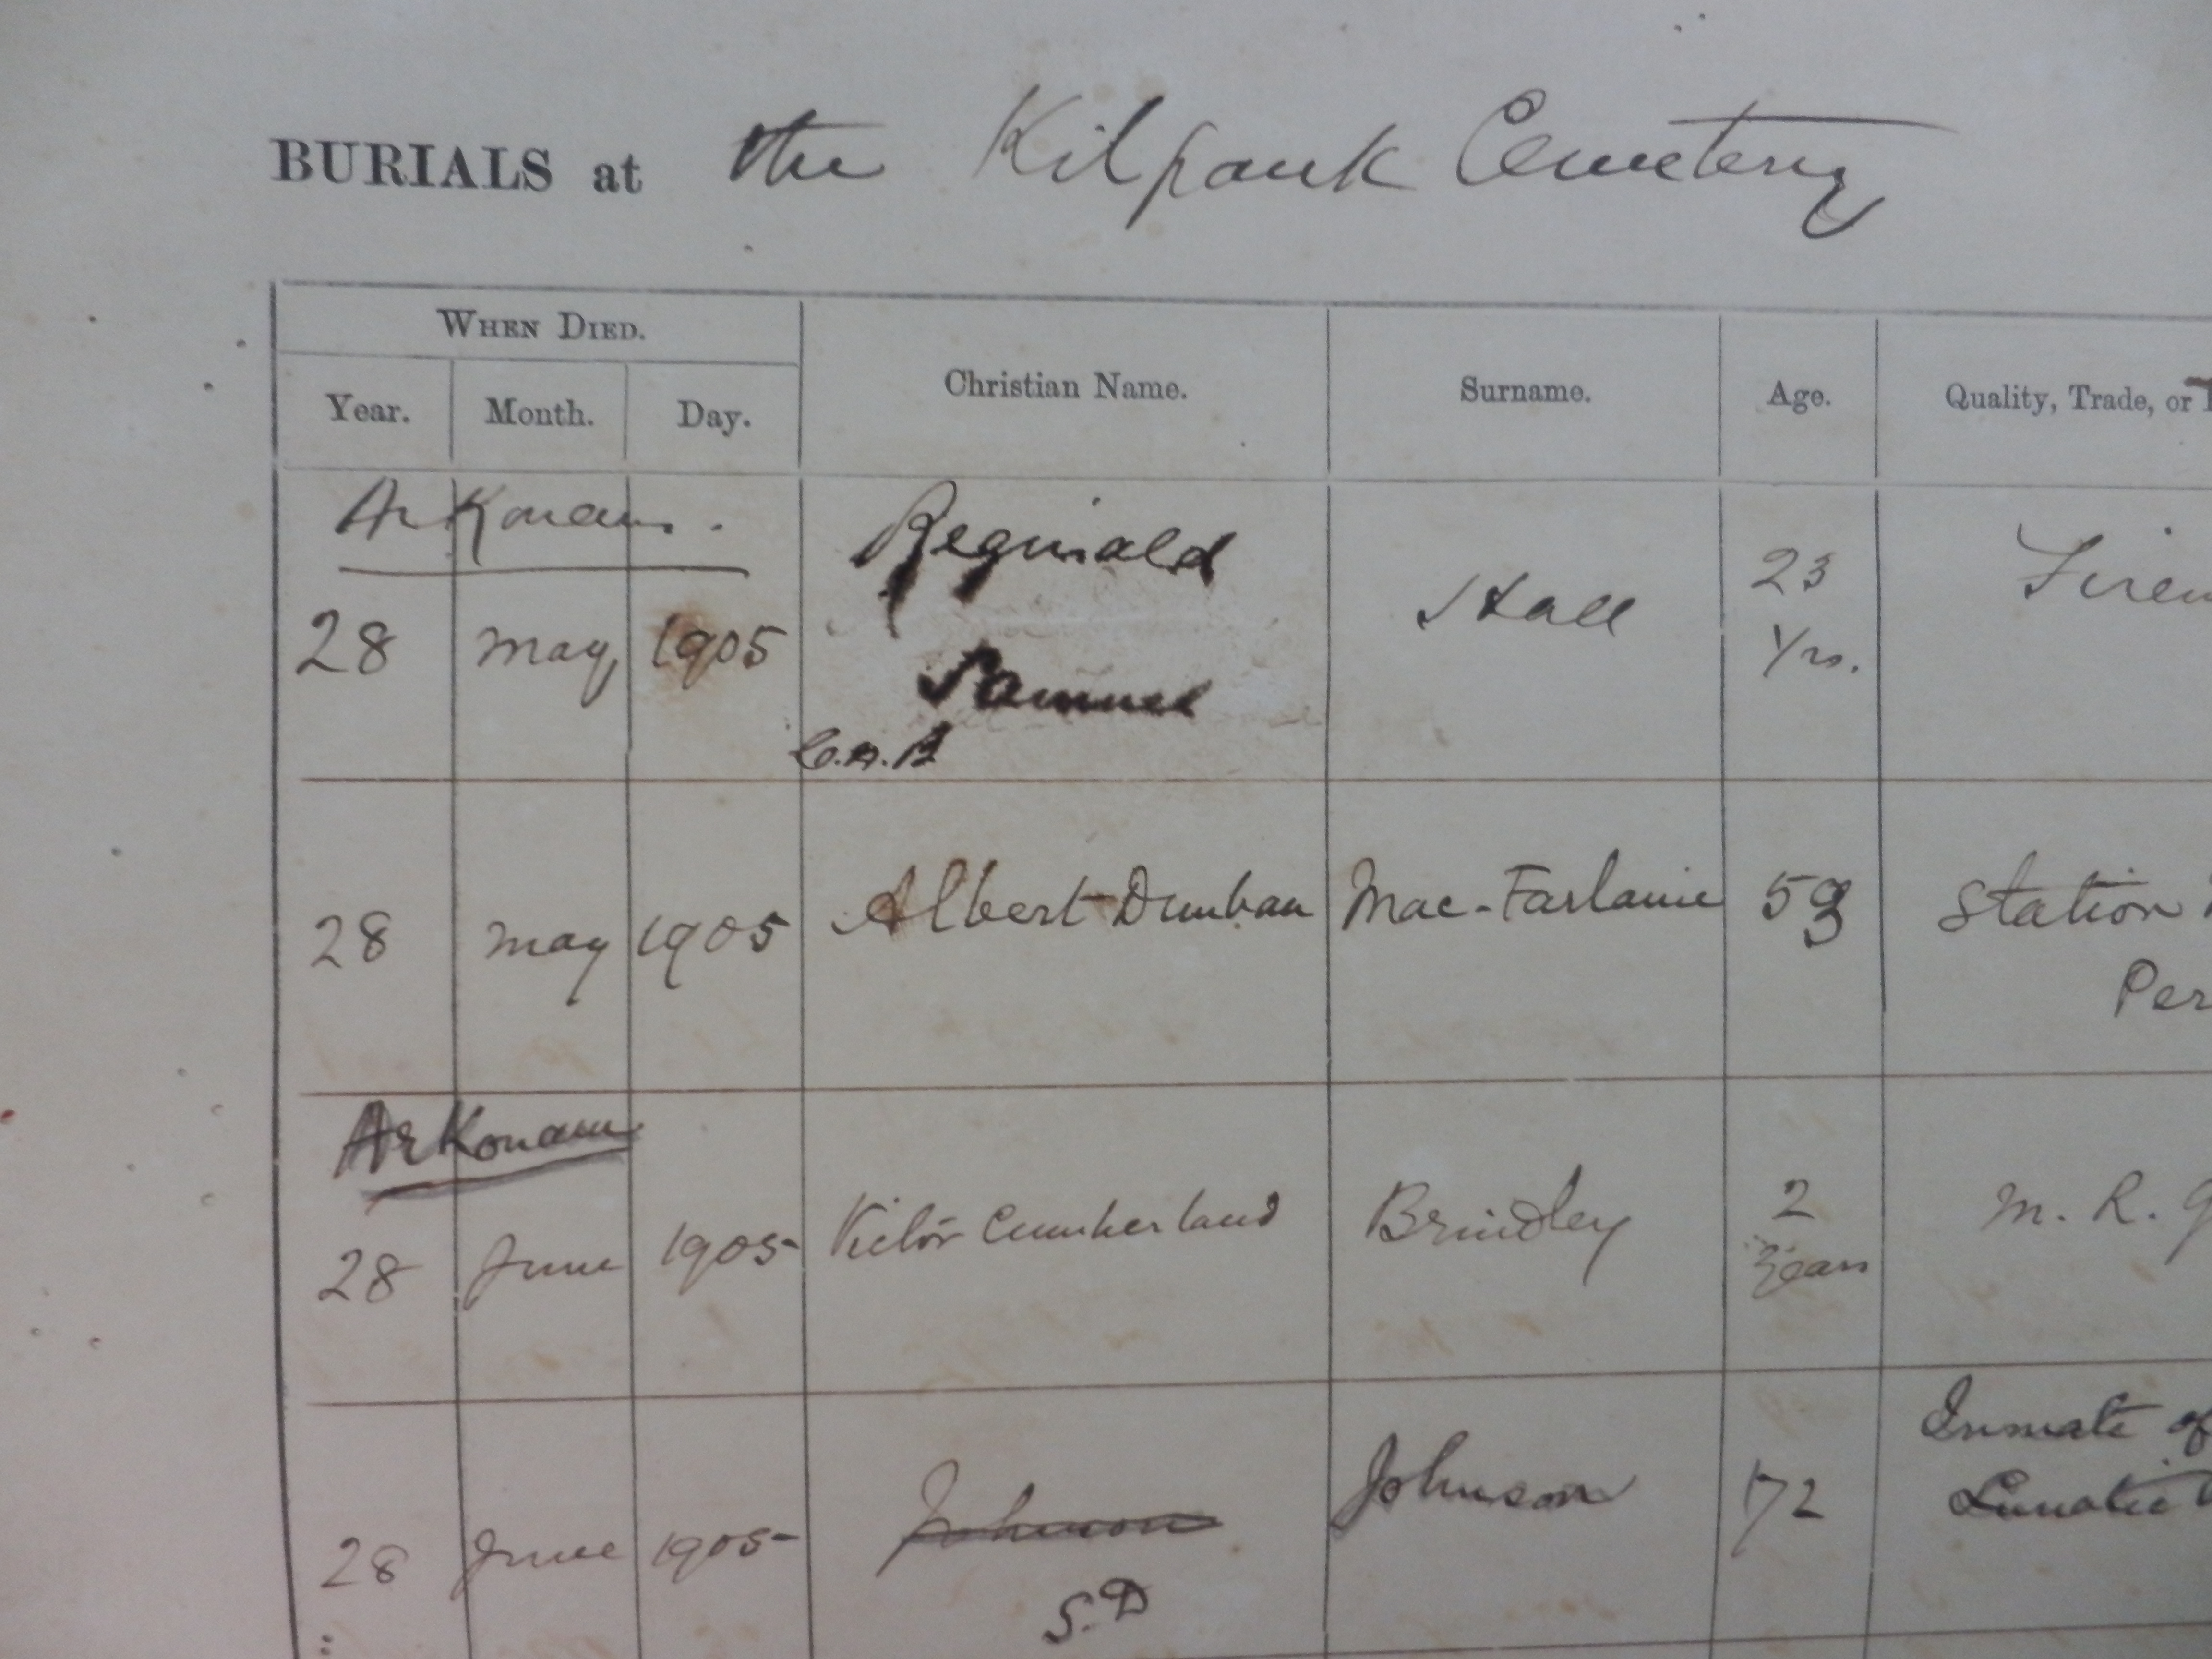 BURIALS at the Kilpauk Cemetery
WHEN DIED.
Year. Month. Day. Christian Name. Surname. Age. Quality, Trade, or
Arkonam.
Reginald
28 May 1905 Stall 23
Yrs. Firem
Samuel
C.A.B
28 May 1905 Albert Dunbar Mac-Farlane Station
Per
Arkonam
28 June 1905 Victor Cumberland Brindley 2 M. R.
Years
Inmate of
28 June 1905 Johnson Johnson 72 Lunatic
S.D